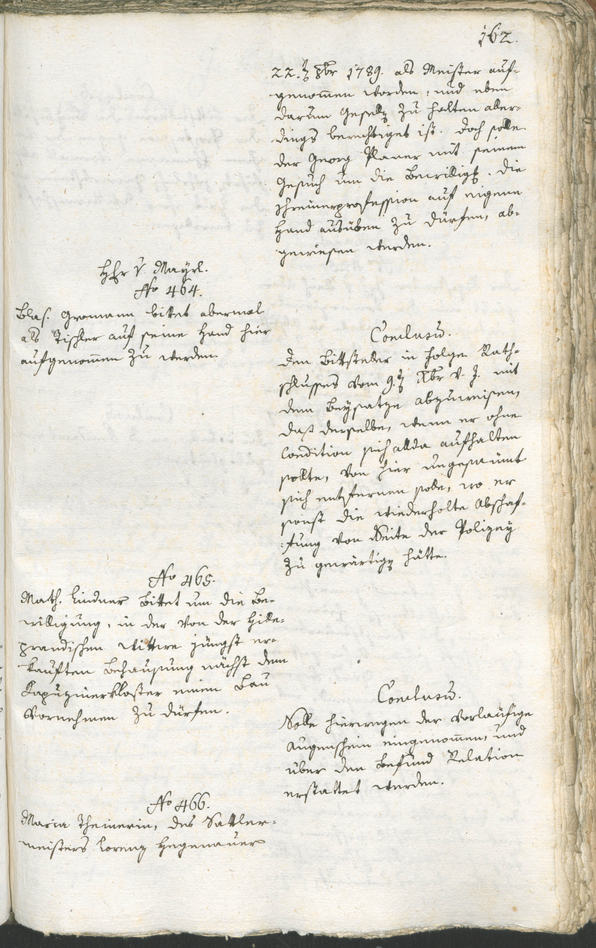 162.
22.ten 8br 1789. als Meister auf-
genommen worden, und eben
darum Gesellen zu halten aller-
dings berechtiget ist. Doch solle
der Georg Planer mit seinem
Gesuch um die Bewilligung, die
Schreinerprofession auf eigene
Hand ausüben zu dürfen, ab-
gewiesen werden.
Hr. v. Mayrl.
No 464.
Blas. Gromann bittet abermal
als Tischler auf seine Hand hier
aufgenommen zu werden.
Conclusum.
Den Bittsteller in Folge Rath-
schlusses vom 9.ten Xbr v. J. mit
dem Beysatze abzuweisen,
daß derselbe, wenn er ohne
Condition sich allda aufhalten
sollte, von hier ungesäumt
sich entfernen solle, wo er
sonst die wiederholte Abschaf-
fung von Seite der Polizey
zu gewärtigen hätte.
No 465.
Math. Lindner bittet um die Be-
willigung, in der von der Hilde-
prandischen Wittwe jüngst er-
kauften Behausung nächst dem
Kapuzinerkloster einen Bau
vornehmen zu dürfen.
Conclusum.
Solle hierwegen der vorläufige
Augenschein eingenommen, und
über den Befund Relation
erstattet werden.
No 466.
Maria Theinerin, des Sattler-
meisters Lorenz Hegenauer